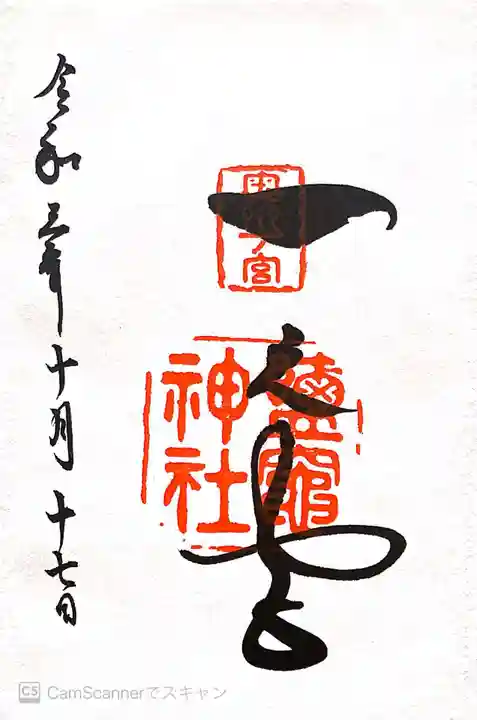 一之宮
鹽竈
神社
令和三年十月十七日
CS CamScannerでスキャン